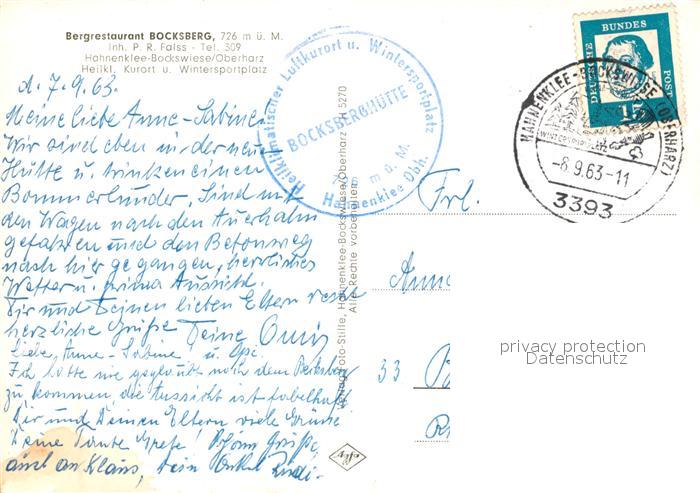 Bergrestaurant BOCKSBERG, 726 m ü. M.
Inh. P. R. Falss - Tel. 309
Hahnenklee-Bockswiese/Oberharz
Heilkl. Kurort u. Wintersportplatz
d. 7.9.63.
Meine liebe Anne-Sabine!
Wir sind eben in der neuen
Hütte u. trinken einen
Bommerlunder. Sind mit
den Wagen nach den Auerhahn
gefahren und den Betonweg
nach hier gegangen, herrliches
Wetter u. prima Aussicht.
Dir und Deinen lieben Eltern recht
herzliche Grüße Deine Omi
Liebe, Anne-Sabine! u. Opi.
Ich hätte nie geglaubt nach dem
zu kommen, die Aussicht ist fabelhaft
Dir und Deinen Eltern viele Grüße
Deine Tante Grete! Schöne Grüße,
auch an Klaus, Dein Onkel
Heilklimatischer Luftkurort u. Wintersportplatz
BOCKSBERGHÜTTE
726 m ü. M.
Hahnenklee Obh.
Verlag Foto-Stille, Hahnenklee-Bockswiese/Oberharz 5270
Alle Rechte vorbehalten
DEUTSCHE BUNDESPOST
15
HAHNENKLEE-BOCKSWIESE (OBERHARZ)
-8.9.63-11
3393
Frl.
Anne
33
privacy protection
Datenschutz
Agfa